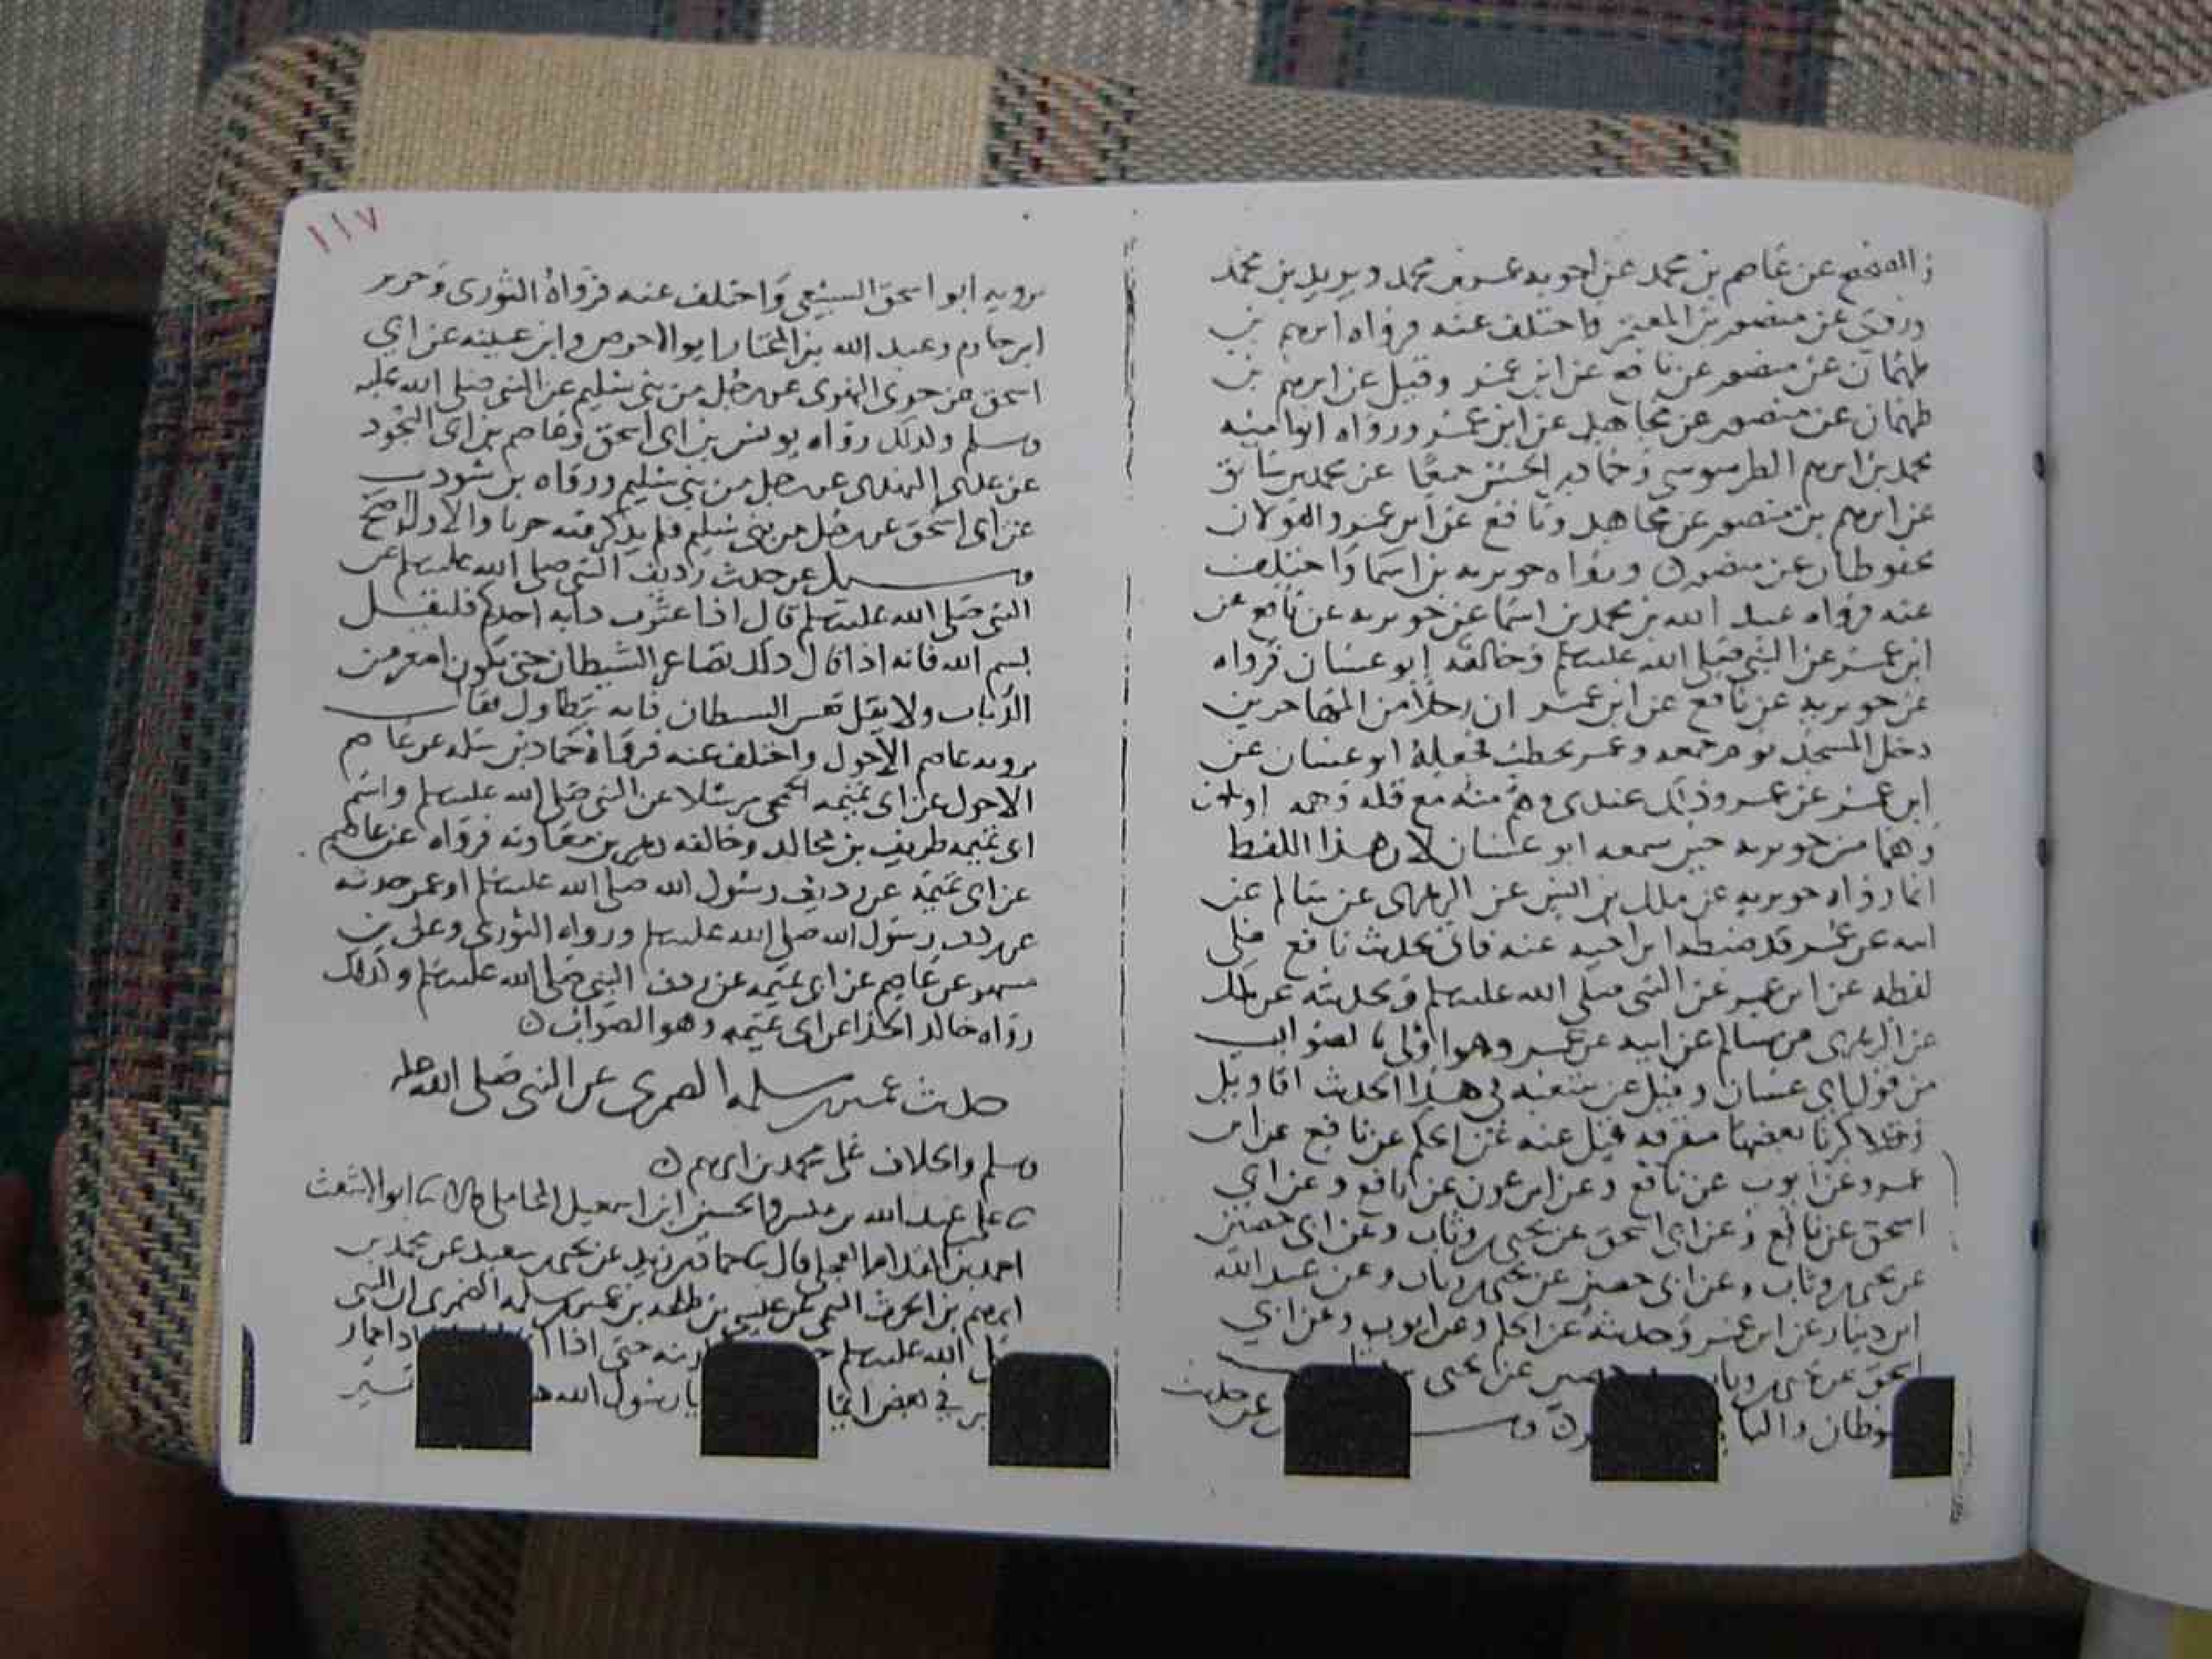 عن عاصم بن محمد عن اخويه عمر بن محمد ويزيد بن محمد
وروي عن منصور بن المعتمر واختلف عنه فرواه ابرهيم بن
طهمان عن منصور عن نافع عن ابن عمر وقيل عن ابرهيم بن
طهمان عن منصور عن مجاهد عن ابن عمر ورواه ابو اميه
محمد بن ابرهيم الطرسوسي وحماد بن الحسن جميعا عن محمد بن سابق
عن ابرهيم بن منصور عن مجاهد ونافع عن ابن عمر والقولان
محفوظان عن منصور ورواه جويريه بن اسما واختلف
عنه فرواه عبد الله بن محمد بن اسما عن جويريه عن نافع عن
ابن عمر عن النبي صلى الله عليه وسلم وخالفه ابو غسان فرواه
عن جويريه عن نافع عن ابن عمر ان رجلا من المهاجرين
دخل المسجد يوم جمعه وعمر يخطب فجعله ابو غسان عن
ابن عمر عن عمر وذلك عندي وهم منه مع قله وهمه او يكون
وهما من جويريه حين سمعه ابو غسان لان هذا اللفظ
انما رواه جويريه عن ملك بن انس عن الزهري عن سالم عن
ابيه عن عمر قد ضبطه ابن اخيه عنه فاتى بحديث نافع على
لفظه عن ابن عمر عن النبي صلى الله عليه وسلم وبحديثه عن ملك
عن الزهري عن سالم عن ابيه عن عمر وهو اولى بالصواب
من قول ابي غسان وقيل عن شعبه في هذا الحديث اقاويل
وقد ذكرنا بعضها متفرقه قيل عنه عن الحكم عن نافع عن ابن
عمر وعن ايوب عن نافع وعن ابن عون عن نافع وعن ابي
اسحق عن نافع وعن ابي اسحق عن يحيى بن وثاب وعن ابي حصين
عن يحيى بن وثاب وعن ابي حصين عن يحيى بن وثاب وعن عبد الله
ابن دينار عن ابن عمر وحديثه عن الحكم وعن ايوب وعن ابي
اسحق عن يحيى بن وثاب حصين عن يحيى
عن حديث
١١٧
يرويه ابو اسحق السبيعي واختلف عنه فرواه الثوري وجرير
ابن حازم وعبد الله بن المختار وابو الاحوص وابن عيينه عن ابي
اسحق عن جري النهدي عن رجل من بني سليم عن النبي صلى الله عليه
وسلم وكذلك رواه يونس بن ابي اسحق وعاصم بن ابي النجود
عن النهدي عن رجل من بني سليم ورواه بن شوذب
عن ابي اسحق عن رجل من بني سليم فلم يذكر فيه جريا والاول اصح
وسئل عن حديث رديف النبي صلى الله عليه وسلم عن
النبي صلى الله عليه وسلم قال اذا عثرت دابه احدكم فليقل
بسم الله فانه اذا قال ذلك تصاغر الشيطان حتى يكون اصغر من
الذباب ولا يقل تعس الشيطان فانه يتطاول فقال
يرويه عاصم الاحول واختلف عنه فرواه حماد بن سلمه عن عاصم
الاحول عن ابي تميمه الهجيمي مرسلا عن النبي صلى الله عليه وسلم واسم
ابي تميمه طريف بن مجالد وخالفه زهير بن معاويه فرواه عن عاصم
عن ابي تميمه عن رديف رسول الله صلى الله عليه وسلم او عمن حدثه
عن ردف رسول الله صلى الله عليه وسلم ورواه الثوري وعلي بن
مسهر عن عاصم عن ابي تميمه عن ردف النبي صلى الله عليه وسلم وكذلك
رواه خالد الحذا عن ابي تميمه وهو الصواب
حديث عمير بن سلمه الضمري عن النبي صلى الله عليه
وسلم والخلاف على محمد بن ابرهيم
عبد الله بن والحسين ابن اسمعيل المحاملي قالا ثنا ابو الاشعث
احمد بن المقدام العجلي قال ثنا حماد بن زيد عن يحيى بن سعيد عن محمد بن
ابرهيم بن الحرث التيمي عن عيسى بن طلحه عن عمير بن سلمه الضمري ان النبي
الله عليه وسلم حتى اذا
في بعض يا رسول الله